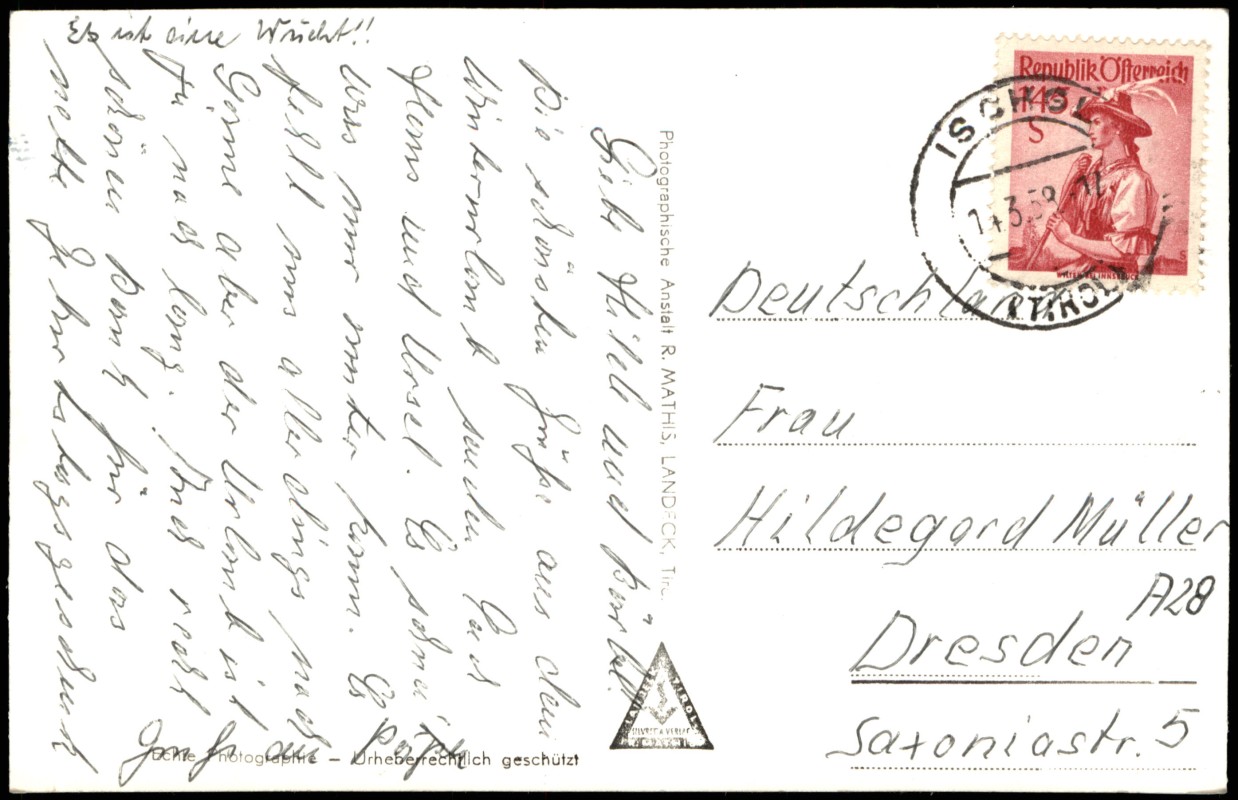 Liebe Hilde und Bärbel!
Die schönsten Grüße aus dem
Winterurlaub senden Euch
und Ursel. Es schneit
was nur runter kann. Es
fehlt uns allerdings noch
Sonne aber der Urlaub ist
ja noch lang. Auch recht
schönen Dank für das
nette Geburtstagsgeschenk
Es ist eine Wucht!!
Gruß an
Photographische Anstalt R. MATHIS, LANDECK, Tirol
Echte Photographie – Urheberrechtlich geschützt
Republik Österreich
S
ISCHGL
14.3.59
(TIROL)
Deutschland
Frau
Hildegard Müller
A28
Dresden
Saxoniastr. 5